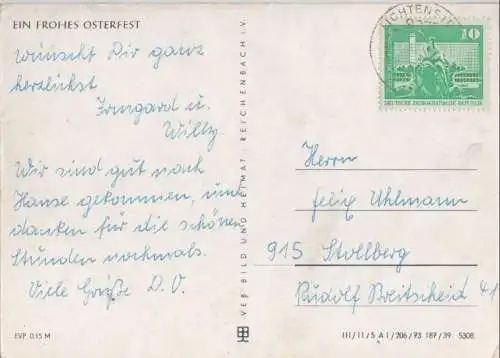 EIN FROHES OSTERFEST
wünscht Dir ganz
herzlichst
Irmgard u.
Willy.
Wir sind gut nach
Hause gekommen, und
danken für die schönen
Stunden nochmals.
Viele Grüße D. O.
EVP 0.15 M
VEB BILD UND HEIMAT, REICHENBACH i. V.
LICHTENSTEIN
10
DEUTSCHE DEMOKRATISCHE REPUBLIK
Herrn
Felix Uhlmann
915 Stollberg
Rudolf Breitscheid 41
III/11/5 A 1/206/73 187/39 5308